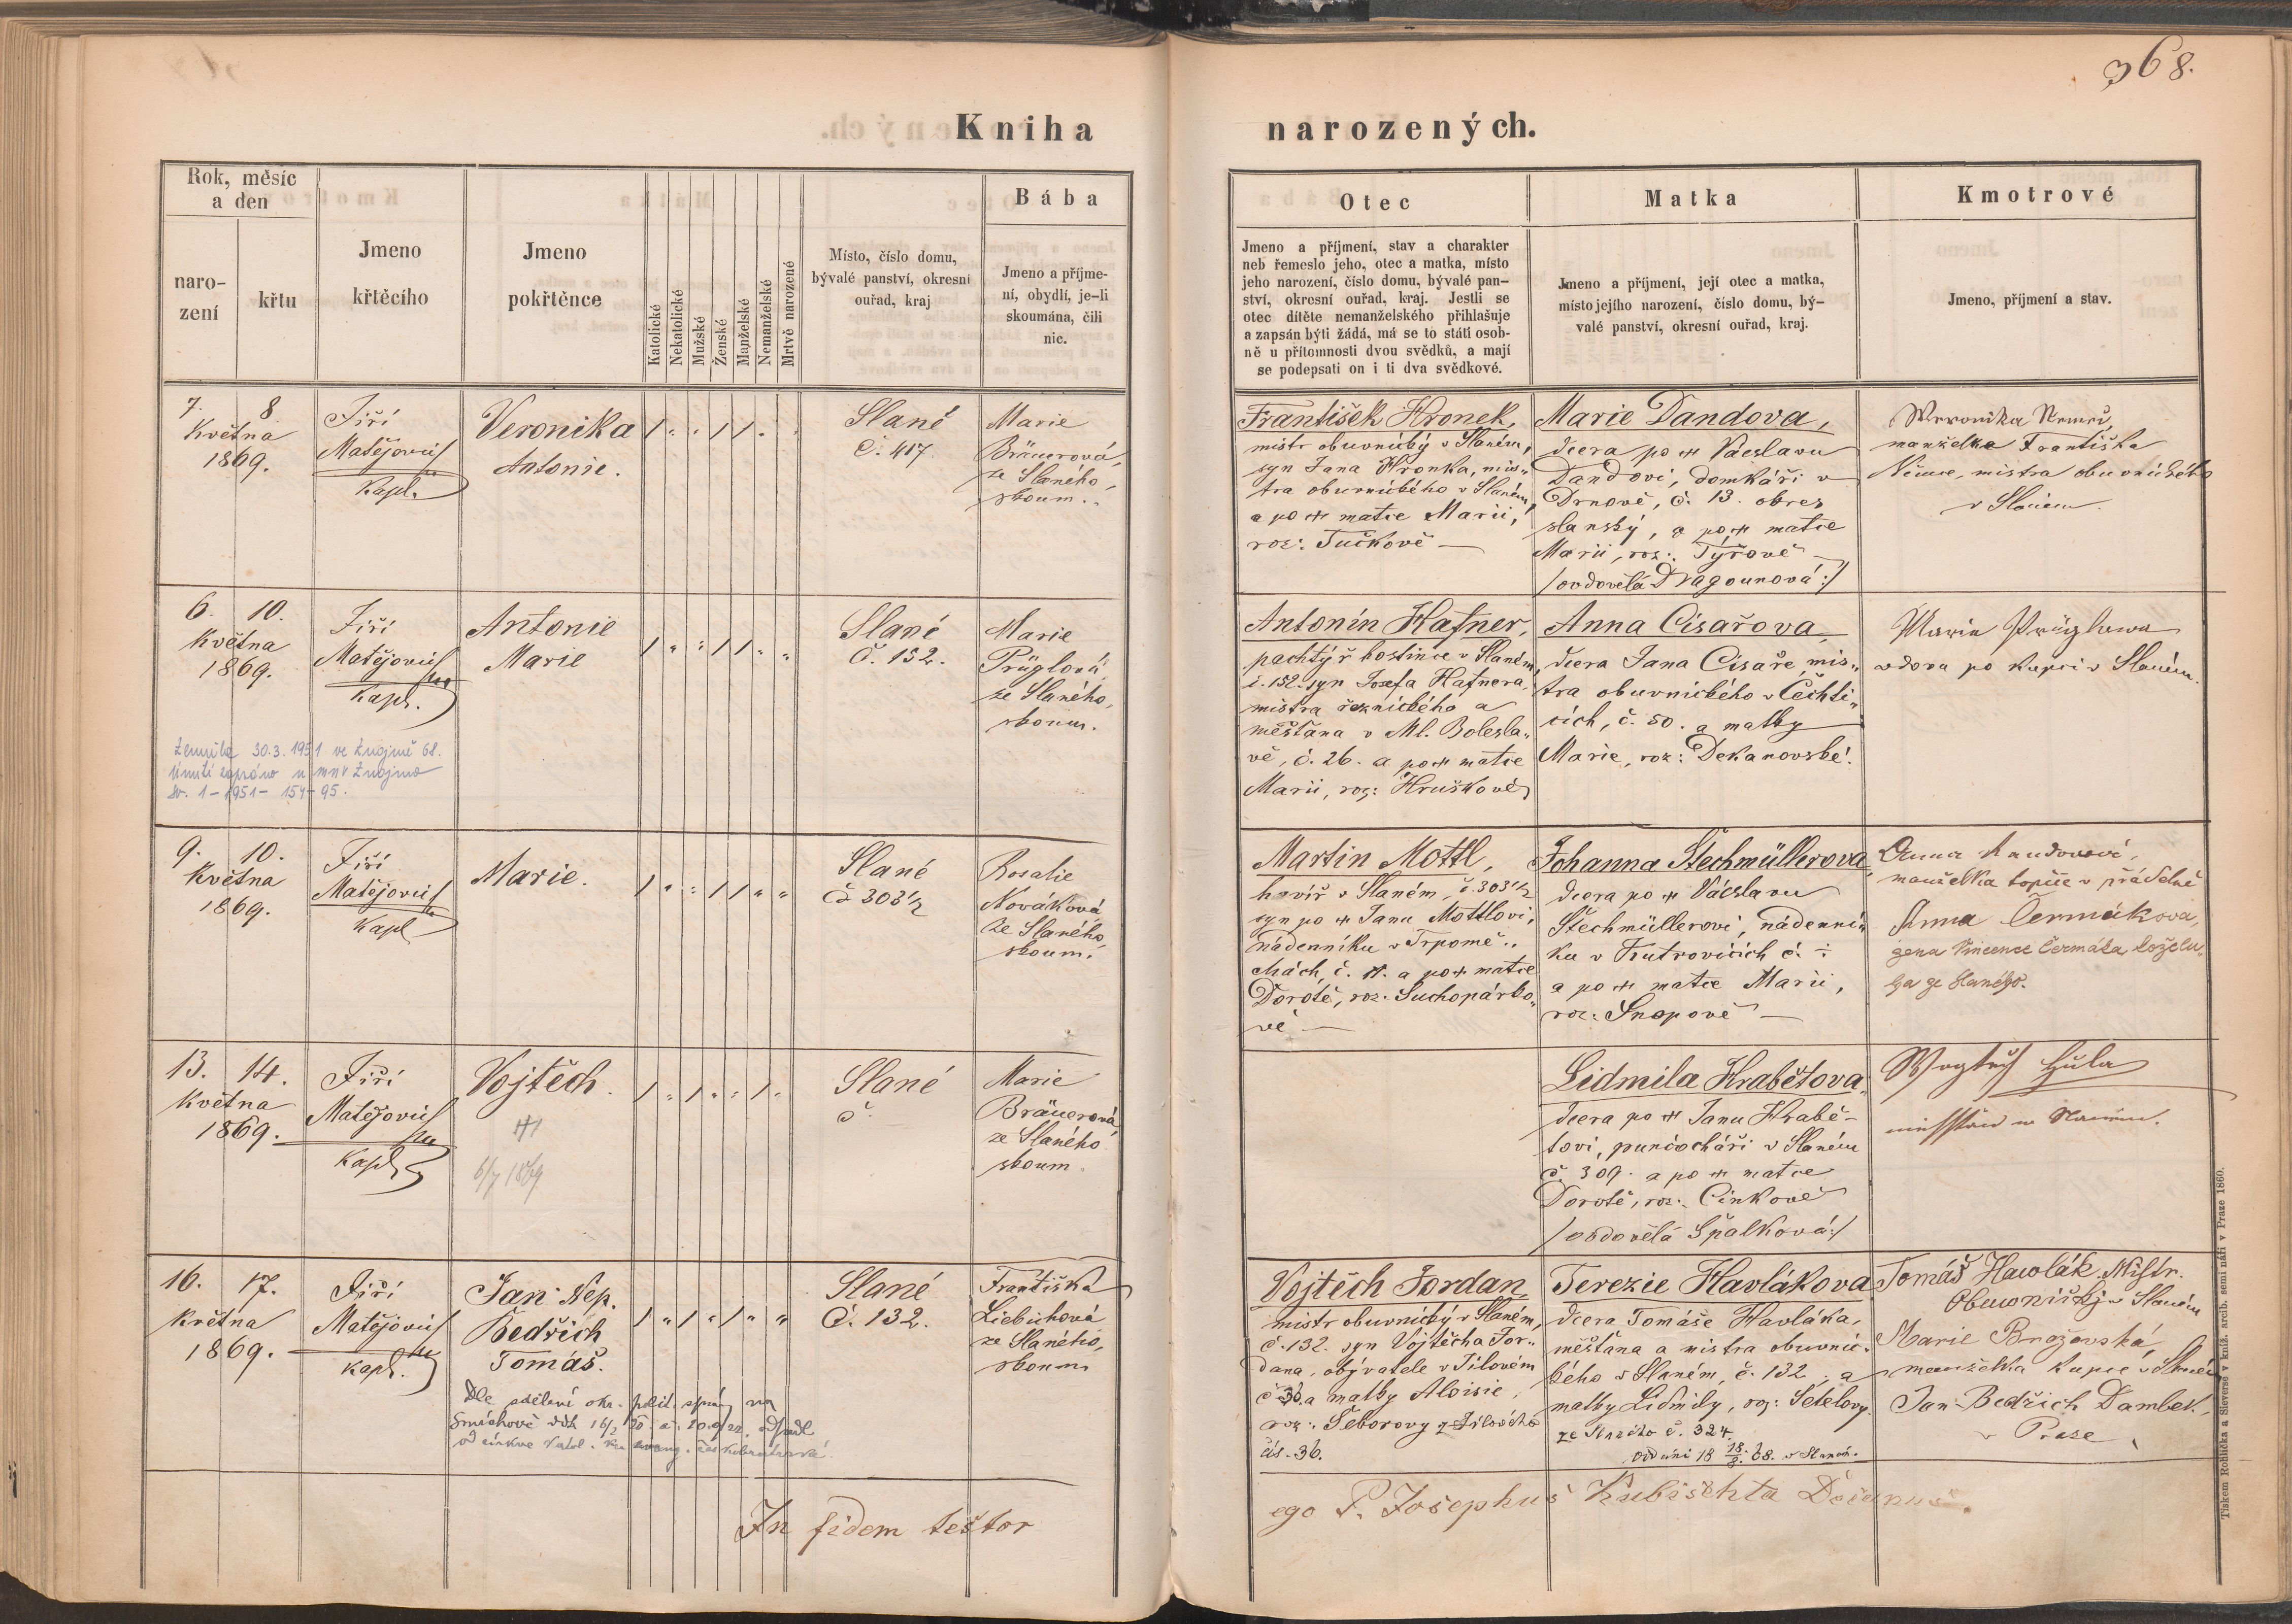 368.
Kniha narozených.
Rok, měsíc
a den
naro-
zení
křtu
Jmeno
křtěcího
Jmeno
pokřtěnce
Katolické
Nekatolické
Mužské
Ženské
Manželské
Nemanželské
Mrtvě narozené
Místo, číslo domu,
bývalé panství, okresní
ouřad, kraj
Bába
Jmeno a příjme-
ní, obydlí, je-li
skoumána, čili
nic.
Otec
Jmeno a příjmení, stav a charakter
neb řemeslo jeho, otec a matka, místo
jeho narození, číslo domu, bývalé pan-
ství, okresní ouřad, kraj. Jestli se
otec dítěte nemanželského přihlašuje
a zapsán býti žádá, má se to státi osob-
ně u přítomnosti dvou svědků, a mají
se podepsati on i ti dva svědkové.
Matka
Jmeno a příjmení, její otec a matka,
místo jejího narození, číslo domu, bý-
valé panství, okresní ouřad, kraj.
Kmotrové
Jmeno, příjmení a stav.
7. 8
Května
1869.
Jiří
Matějovič
Kapl.
Veronika
Antonie.
Slané
č. 417
Marie
Bräuerová,
ze Slaného,
skoum.
František Hronek,
mistr obuvnický v Slaném,
syn Jana Hronka, mis-
tra obuvnického v Slaném,
a po † matce Marii,
roz: Tučkově
Marie Dandova,
dcera po † Václavu
Dandovi, domkáři v
Drnově, č. 13. okres
slanský, a po † matce
Marii, roz: Tyřově
/:ovdovělá Dragounová:/
manželka Františka
Němce, mistra obuvnického
v Slaném.
6. 10.
Května
1869.
Jiří
Matějovič
Kapl.
Antonie
Marie
Slané
č. 152.
Marie
Prüglová,
ze Slaného,
skoum.
Antonín Hafner,
pachtýř hostince v Slaném,
č. 152. syn Josefa Hafnera,
mistra řeznického a
měšťana v Ml. Bolesla-
vě, č. 26. a po † matce
Marii, roz: Hruškově
Anna Cisařova,
dcera Jana Císaře, mis-
tra obuvnického v Čechti-
cích, č. 50. a matky
Marie, roz: Dekanovské.
Marie Prüglowa
vdova po kupci v Slaném.
Zemřela 30.3.1951 ve Znojmě 68.
Úmrtí zapsáno u MNV Znojmo
sv. 1-1951- 154-95.
9. 10.
Května
1869.
Jiří
Matějovič
Kapl
Marie.
Slané
č 303 1/2
Rosalie
Nováková
ze Slaného,
skoum.
Martin Mottl,
havíř v Slaném, č. 303 1/2
syn po † Janu Mottlovi,
nádenníku v Trpomě-
chách, č. 11. a po † matce
Dorotě, roz: Suchopárko-
vé
Johanna Štechmüllerova,
dcera po † Václavu
Štechmüllerovi, nádenní-
ku v Kutrovicích č. ÷
a po † matce Marii,
roz: Šnopově
manželka topiče v přádelně
Anna Čermákova,
žena Vincence Čermáka koželu-
ha ze Slaného.
13. 14.
Května
1869.
Jiří
Matějovič
Kapl
Vojtěch.
†
6/7 1869
Slané
č.
Marie
Bräuerová
ze Slaného
skoum.
Lidmila Hrabětova,
dcera po † Janu Hrabě-
tovi, punčocháři v Slaném
č. 309. a po † matce
Dorotě, roz: Cinkově
/:ovdovělá Špalková:/
16. 17.
Května
1869.
Jiří
Matějovič
Kapl.
Jan Nep.
Bedřich
Tomáš.
Slané
č. 132.
Františka
Liebichová
ze Slaného,
skoum
Vojtěch Jordan,
mistr obuvnický v Slaném,
č. 132. syn Vojtěcha Jor-
dana, obývatele v Jílovém
č 36. a matky Aloisie,
roz: Šeborovy z Jílového
čís. 36.
Terezie Havlákova
dcera Tomáše Havláka,
měšťana a mistra obuvnic-
kého v Slaném, č. 132, a
matky Lidmily, roz: Setelovy
ze Slaného č. 324.
Oddáni 18 18/8. 68. v Slaném.
Tomáš Hawlák Mistr.
Obuwniský w Slaném
Marie Brožovská,
manželka kupce v Slaném
Jan Bedřich Dambek,
v Praze
Dle sdělení okr. polit. správy na
Smíchově odpadl
od církve katol. ku evang. českobratrské.
In fidem testor
ego P. Josephus Kubischta Decanus.
Tiskem Rohlíčka a Sieverse v kníž. arcib. semináři v Praze 1860.